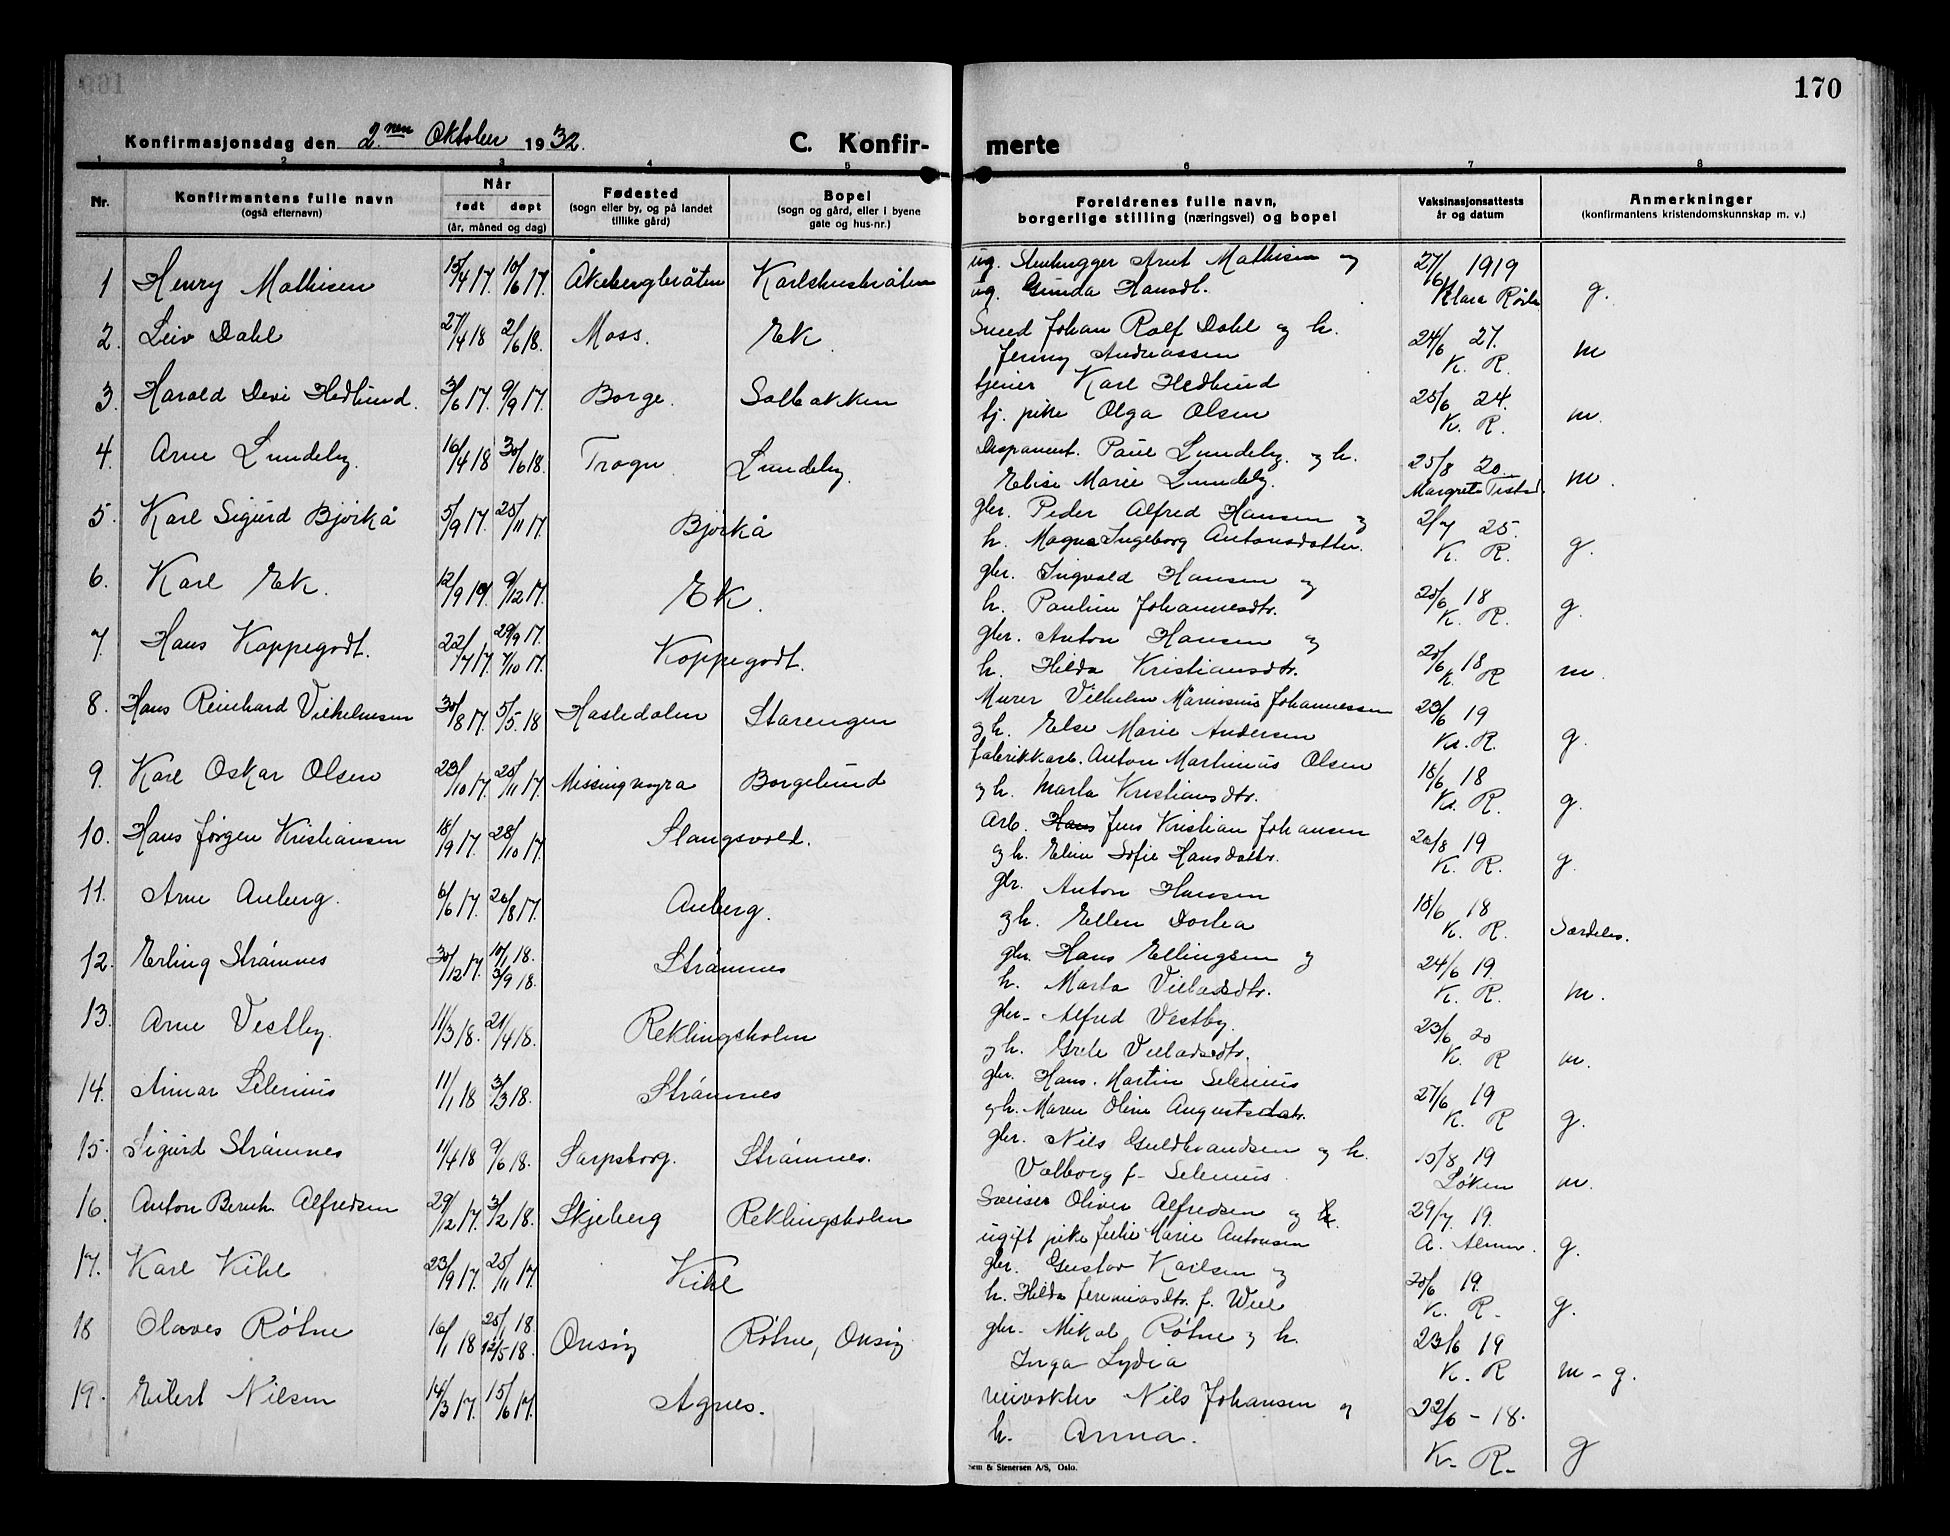 170
Konfirmasjonsdag den 2.nen Oktober 1932.
C. Konfir-
merte
1 2 3 4 5 6 7 8
Nr. Konfirmantens fulle navn (også efternavn)
Når født døpt (år, måned og dag)
Fødested (sogn eller by, og på landet tillike gård)
Bopel (sogn og gård, eller i byene gate og hus-nr.)
Foreldrenes fulle navn, borgerlige stilling (næringsvei) og bopel
Vaksinasjonsattests år og datum
Anmerkninger (konfirmantens kristendomskunnskap m. v.)
1 Henry Mathisen 15/4 17. 10/6 17. Åkebergbråten Karlshusbråten ug. Stenhugger Arnt Mathisen og 27/6 1919
ug. Gunda Hansdt. Klara g.
2. Leiv Dahl 27/4 18 2/6 18. Moss. Ek Smed Johan Rolf Dahl og h. 24/6 27.
Jenny Andreassen K. R. m
3. Harald Hedlund. 3/6 17. 9/9 17. Borge. Solbakken tjener Karl Hedlund 25/6 24.
tj. pike Olga Olsen K. R. m.
4. Arne Lundeby. 16/4 18 30/6 18. Trøgn Lundeby. Paul Lundeby. og h. 25/8 20.
Elise Marie Lundeby. Margrete m.
5. Karl Sigurd Bjørkå 5/9 17. 25/11 17. Bjørkå gbr. Peder Alfred Hansen og 2/7 25.
h. Magna Ingeborg Antonsdatter. K. R. g.
6. Karl Ek. 12/9 17. 9/12 17. Ek. gbr. Ingvald Hansen og 25/6 18
h. Pauline Johannesdtr. K. R. g.
7. Hans Koppegodt. 22/7 17. 29/9 17. 7/10 17. Koppegodt. gbr. Anton Hansen og 25/6 18
h. Hilda Kristiansdtr. K. R m.
8. Hans Reinhard Vilhelmsen 30/8 17. 5/5. 18 Hasledalen Starengen Murer Vilhelm Johannessen 23/6 19
og h. Else Marie Andersen Kl. R. g.
9. Karl Oskar Olsen 23/10 17. 25/11 17. Missingmyra Borgelund fabrikkarb. Anton Martinius Olsen 18/6 18
og h. Marta Kristiansdtr. Kl. R. g.
10. Hans Jørgen Kristiansen 18/9 17. 28/10 17. Slangsvold. Arb. Hans Jens Kristian Johansen 20/8 19
og h. Eline Sofie Hansdattr. K. R. g.
11. Arne Auberg. 6/6 17. 26/8 17. Auberg. gbr. Anton Hansen 18/6 18
og h. Ellen Dortea K. R. Særdeles.
12. Erling Strømnes 30/12 17. 10/1 18. 3/9 18. Strømnes gbr. Hans Ellingsen og 24/6 19.
h. Marta Villadsdtr. K. R. m.
13. Arne Vestby. 11/3 18. 21/4 18. Reklingsholm gbr- Alfred Vestby. 23/6 20
og h. Grete Villadsdtr. K. R m.
14. Selenius 11/1 18 3/3 18. Strømnes gbr. Hans. Martin Selenius 27/6 19
og h. Maren Oline Augustsdatr. K. R g.
15. Sigurd Strømnes 11/4 18 9/6 18. Sarpsborg. Strømnes. gbr. Nils Guldbrandsen og h. 15/8 19
Valborg f. Selenius. Løken m.
16. Anton Bernh. Alfredsen 29/12 17. 3/2 18. Skjeberg Reklingsholm Oliver Alfredsen og h. 29/7. 19.
ugift pike Julie Marie Antonsen A. g.
17. Karl Kihl 23/9 17. 25/11 17. Kihl gbr. Gustav Karlsen og 20/6 19.
h. Hilda Jeremiasdtr. f. K. R. g.
18 Olaves Røtne 16/1 18 25/1 18 12/5 18. Onsøy Røtne, Onsøy gbr. Mikal Røtne og h. 23/6 19
Inga Lydia K. R m - g.
19. Eilert Nilsen 14/3 17. 15/6 17. Agnes. veivokter Nils Johansen og 22/6 - 18.
h. Anna. K. R. g
Sem & Stenersen A/S, Oslo.